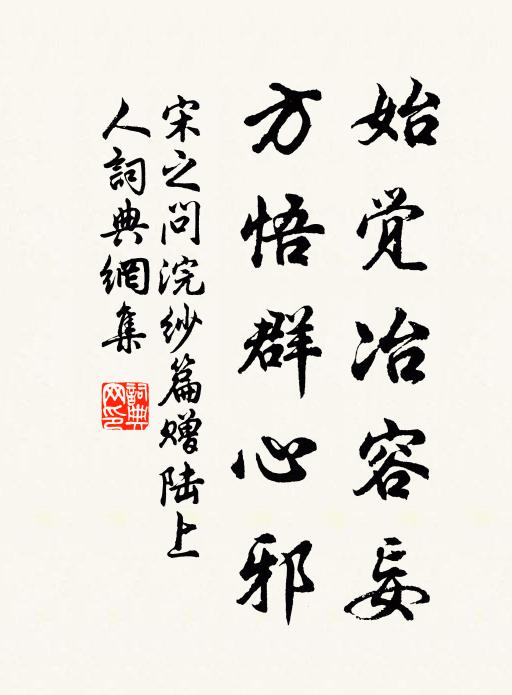 始觉冶容妄
方悟群心邪
宋之问浣纱篇赠陆上
人詞典網集
詞典網印